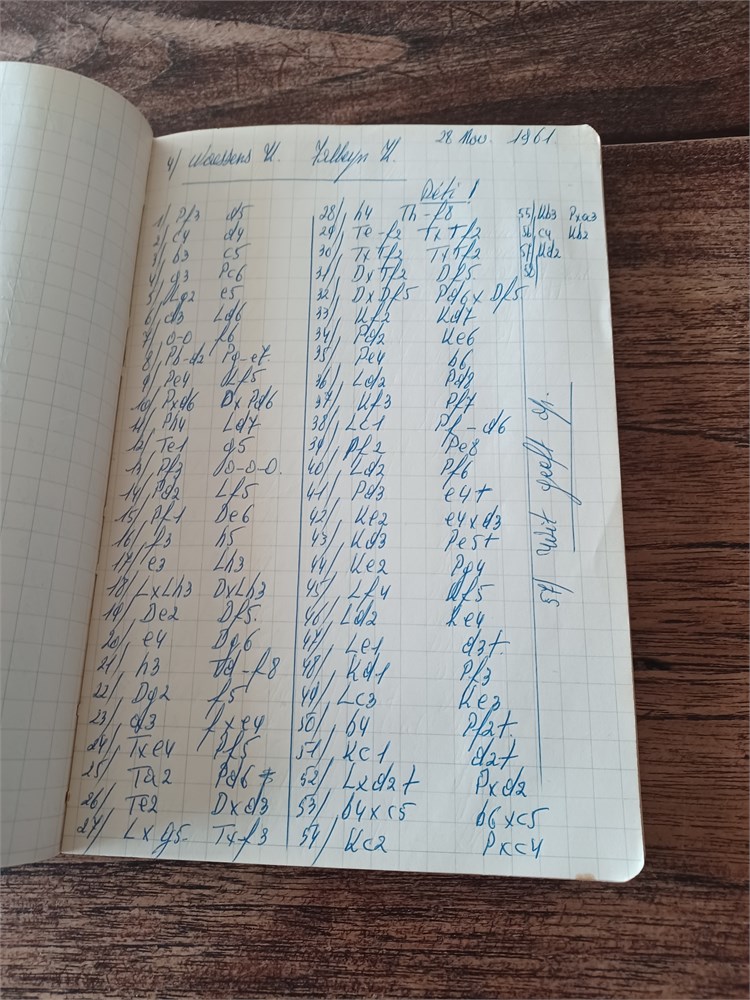 4/ Waessens H. H. 28 Nov. 1961
Réti 1
1/ Pf3 d5
2/ c4 d4
3/ b3 c5
4/ g3 Pc6
5/ Lg2 e5
6/ d3 Ld6
7/ 0-0 f6
8/ Pb-d2 Pg-e7.
9/ Pe4 Lf5
10/ Pxd6 DxPd6
11/ Ph4 Ld7
12/ Te1 g5
13/ Pf3 0-0-0.
14/ Pd2 Lf5
15/ Pf1 De6
16/ f3 h5
17/ e3 Lh3
18/ LxLh3 DxLh3
19/ De2 Df5.
20/ e4 Dg6
21/ h3 Td-f8
22/ Dg2 f5
23/ g3 fxe4
24/ Txe4 Pf5
25/ Ta2 Pd6
26/ Te2 Dxd3
27/ Lxg5. Txf3
28/ h4 Th-f8
29/ Te-f2 TxTf2
30/ TxTf2 TxTf2
31/ DxTf2 Df5
32/ DxDf5 Pd6xDf5
33/ Kf2 Kd7
34/ Pd2 Ke6
35/ Pe4 b6
36/ Ld2 Pd8
37/ Kf3 Pf7
38/ Lc1 Pf-d6
39/ Pf2 Pe8
40/ Ld2 Pf6
41/ Pd3 e4+
42/ Ke2 e4xd3
43/ Kd3 Pe5+
44/ Ke2 Pg4
45/ Lf4 Kf5
46/ Ld2 Ke4
47/ Le1 d3+
48/ Kd1 Pf3
49/ Lc3 Ke3
50/ b4 Pf2+.
51/ Kc1 d2+
52/ Lxd2+ Pxd2
53/ b4xc5 b6xc5
54/ Kc2 Pxc4
55/ Kb3 Pxa3
56/ c4 Kb2
57/ Kd2
58/
57/ Wit geeft op.